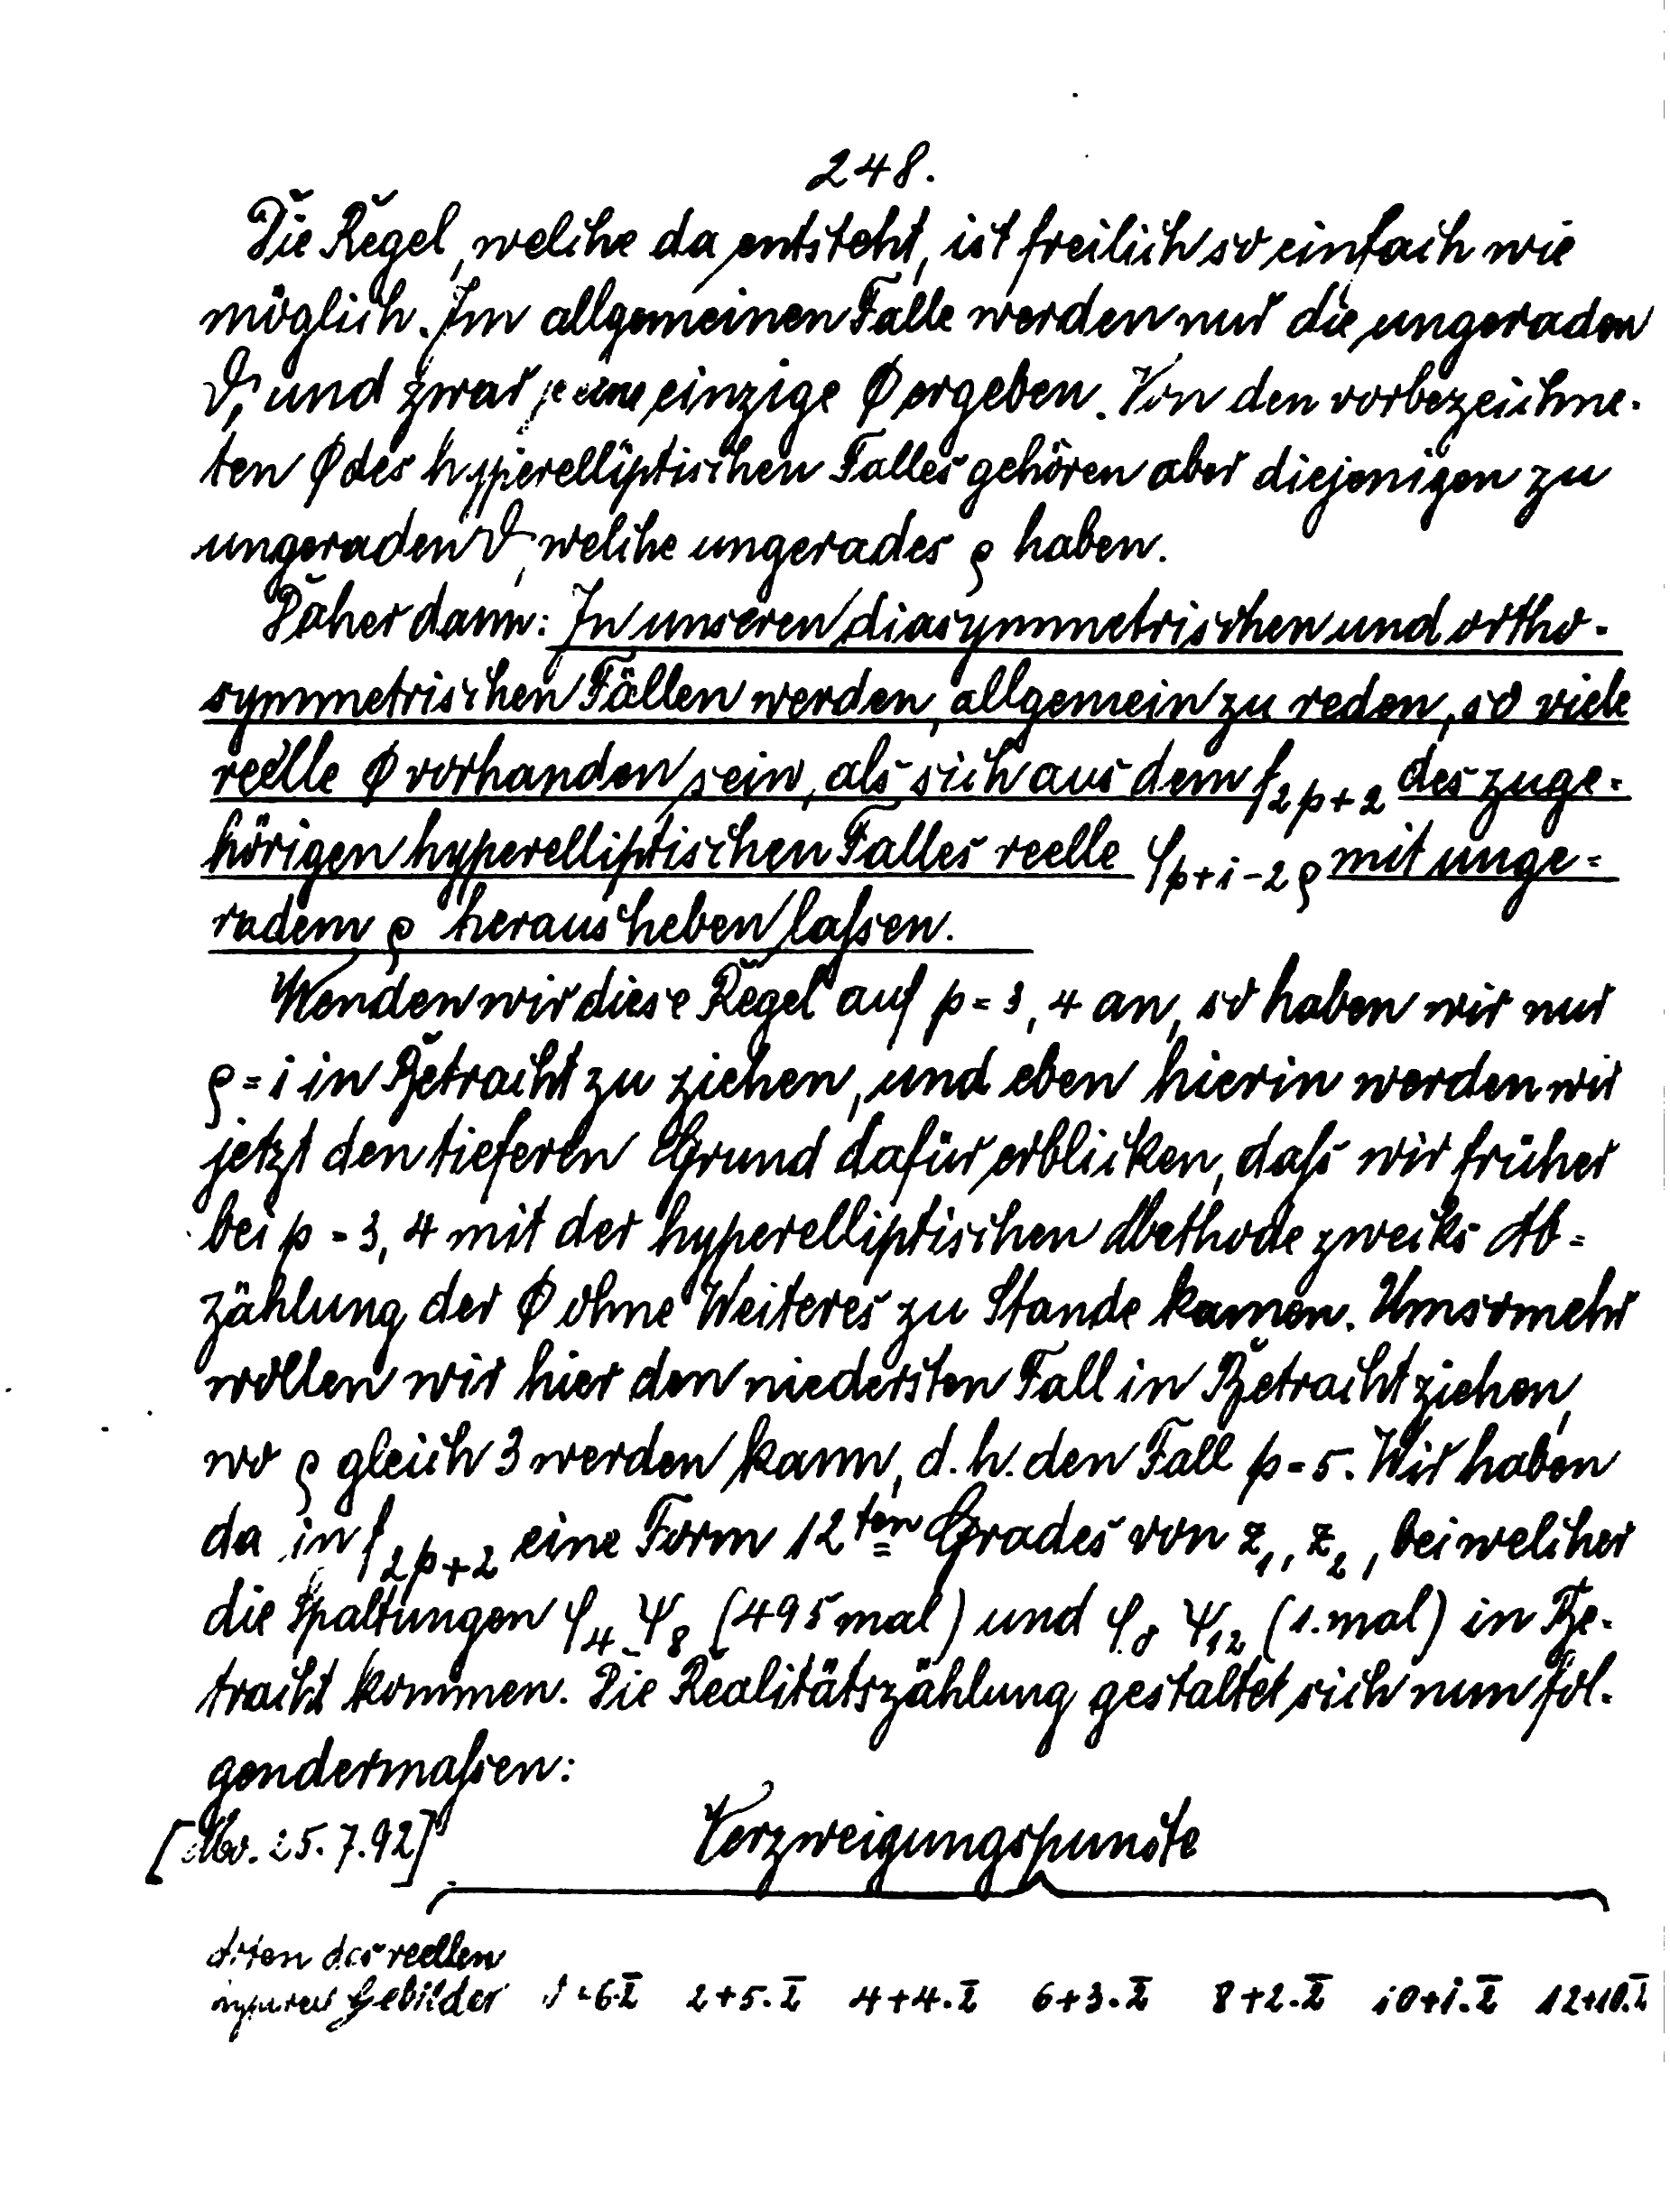 248.
Die Regel, welche da entsteht, ist freilich so einfach wie
möglich. Im allgemeinen Falle werden nur die ungeraden
ϑ, und zwar je eine einzige Φ ergeben. Von den vorbezeichne-
ten Φ des hyperelliptischen Falles gehören aber diejenigen zu
ungeraden ϑ, welche ungerades ρ haben.
Daher dann: In unseren diasymmetrischen und ortho-
symmetrischen Fällen werden, allgemein zu reden, so viele
reelle Φ vorhanden sein, als sich aus dem f_{2p+2} des zuge-
hörigen hyperelliptischen Falles reelle φ_{p+1-2ρ} mit unge-
radem ρ herausheben lassen.
Wenden wir diese Regel auf p = 3, 4 an, so haben wir nur
ρ = 1 in Betracht zu ziehen, und eben hierin werden wir
jetzt den tieferen Grund dafür erblicken, dass wir früher
bei p = 3, 4 mit der hyperelliptischen Methode zwecks Ab-
zählung der Φ ohne Weiteres zu Stande kamen. Umsomehr
wollen wir hier den niedersten Fall in Betracht ziehen,
wo ρ gleich 3 werden kann, d. h. den Fall p = 5. Wir haben
da in f_{2p+2} eine Form 12ten Grades von z_1, z_2, bei welcher
die Spaltungen φ_4 ψ_8 (495 mal) und φ_0 ψ_12 (1. mal) in Be-
tracht kommen. Die Realitätszählung gestaltet sich nun fol-
gendermassen:
[Mo. 25. 7. 92] Verzweigungspuncte
Arten des reellen
Gebildes 0+6.2̅ 2+5.2̅ 4+4.2̅ 6+3.2̅ 8+2.2̅ 10+1.2̅ 12+10.2̅